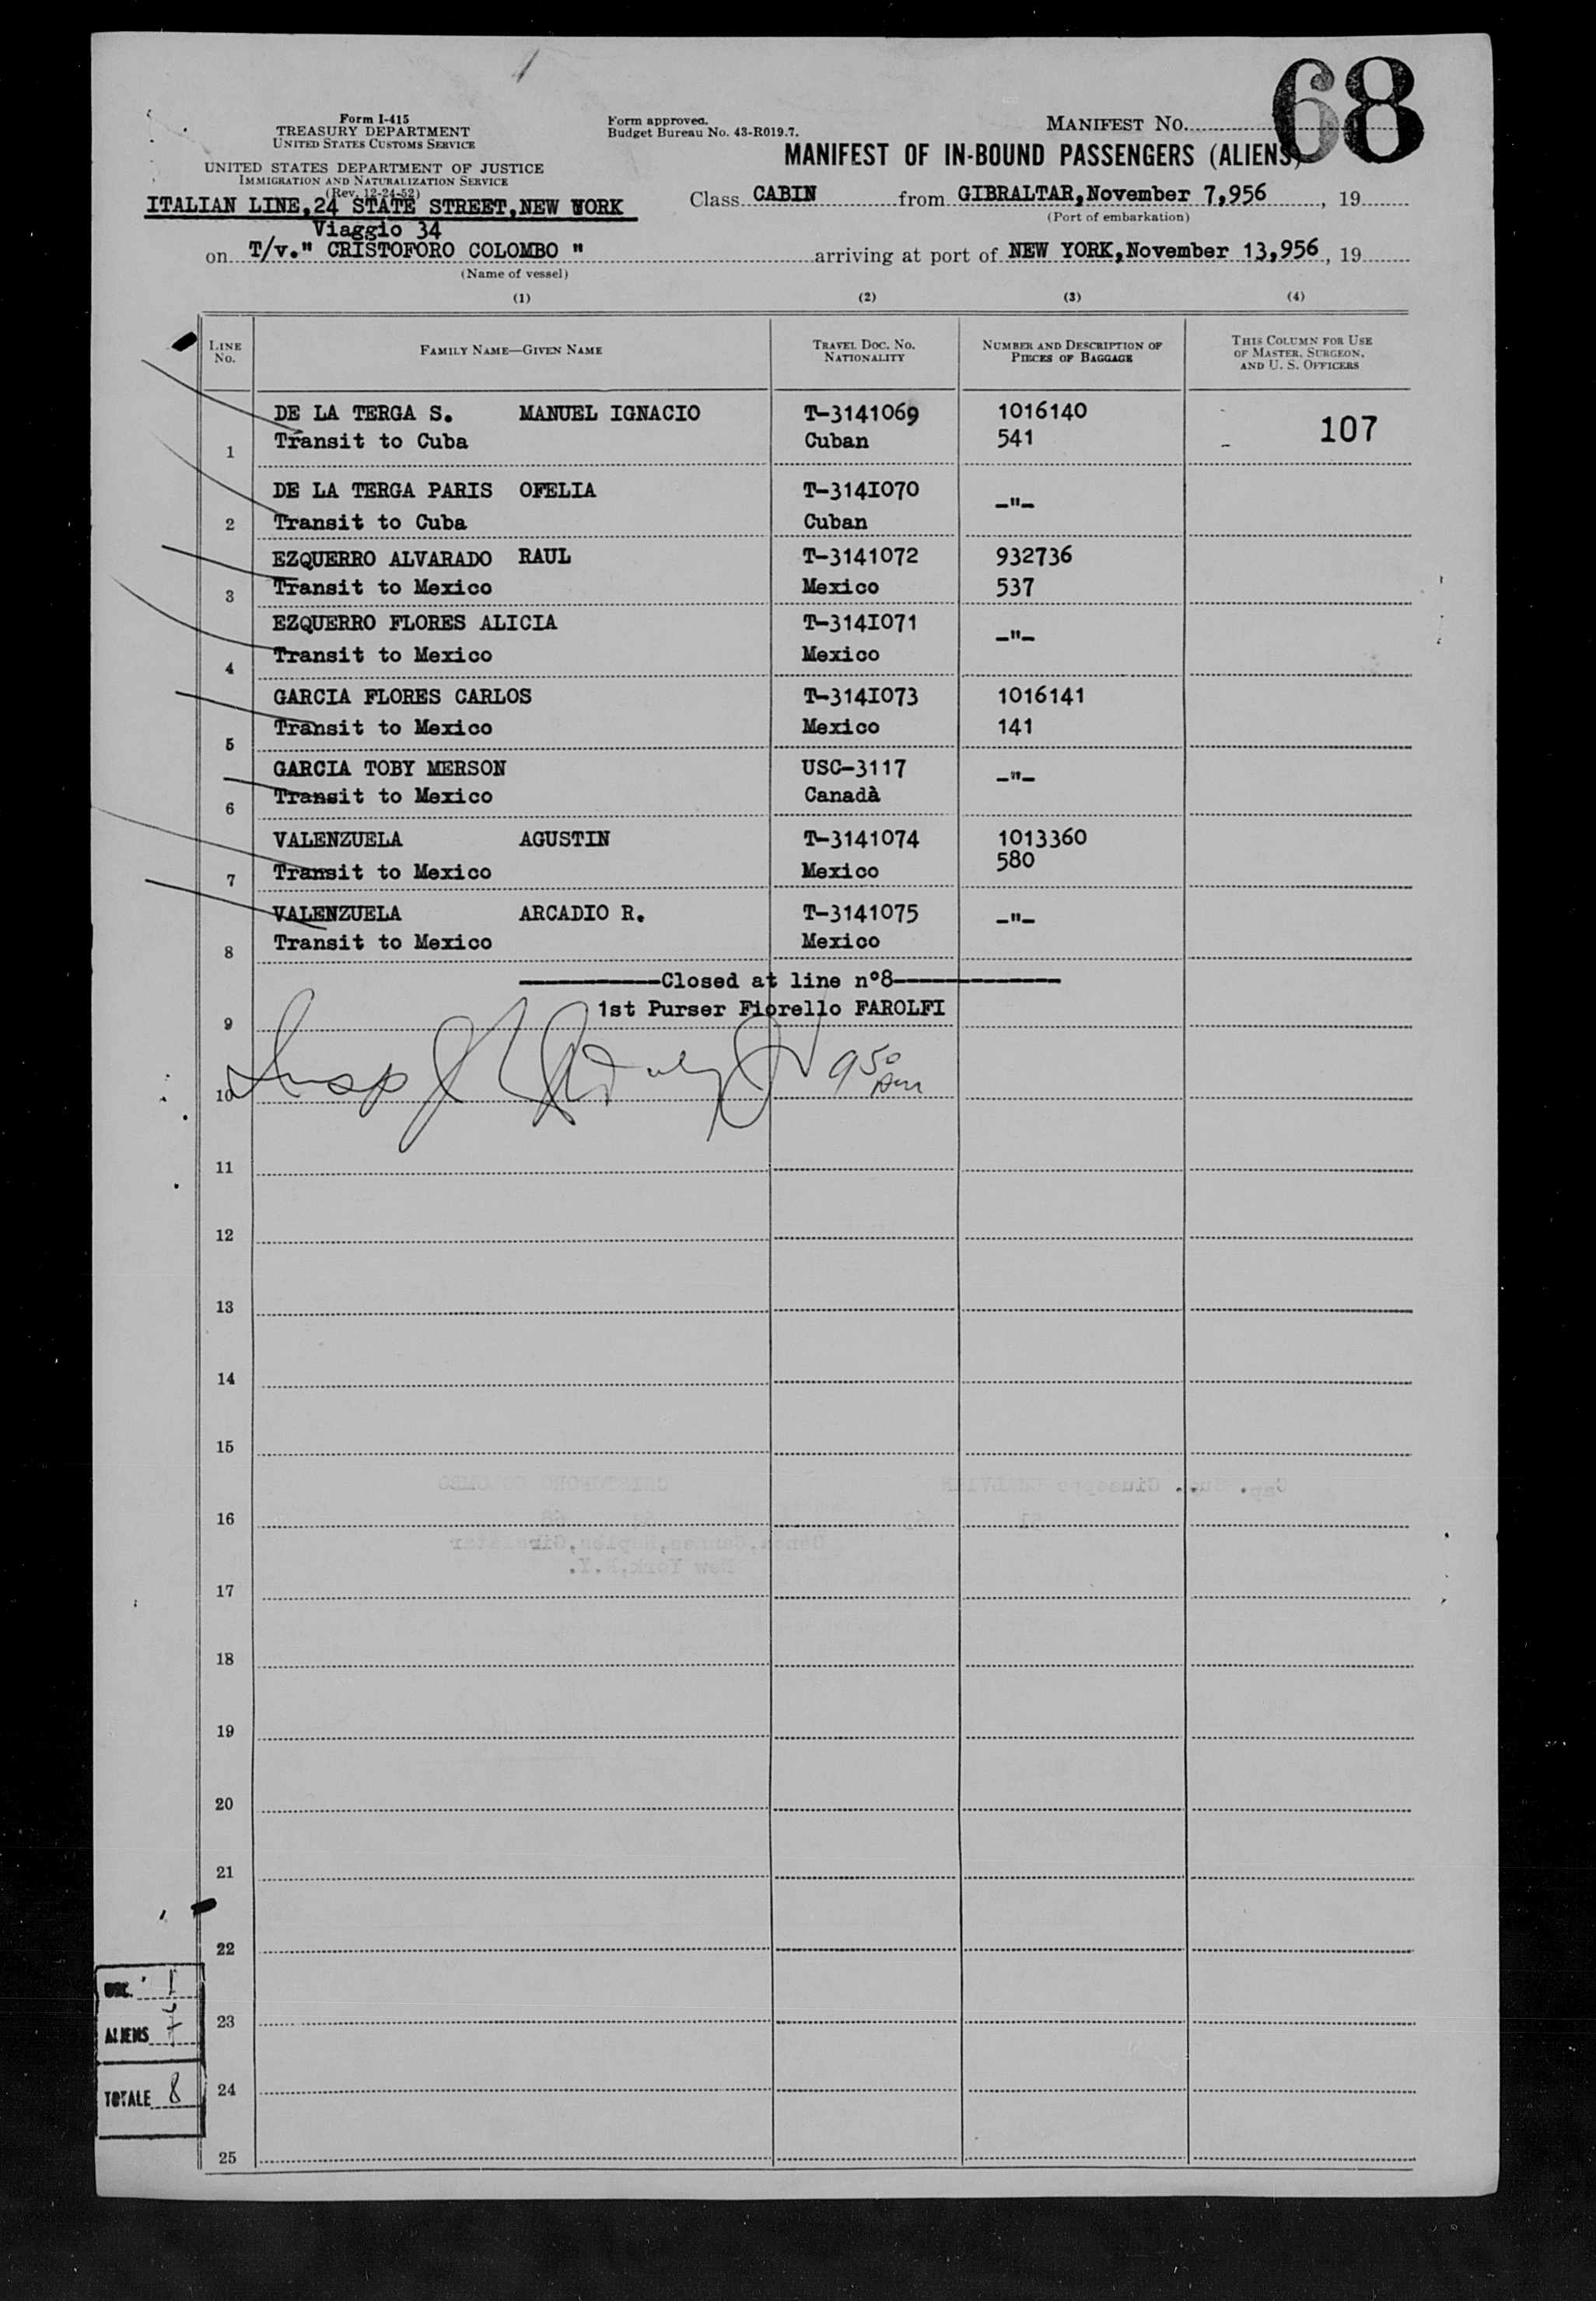 68
Form I-415
TREASURY DEPARTMENT
UNITED STATES CUSTOMS SERVICE
UNITED STATES DEPARTMENT OF JUSTICE
IMMIGRATION AND NATURALIZATION SERVICE
(Rev. 12-24-52)
Form approved.
Budget Bureau No. 43-R019.7.
MANIFEST NO.
MANIFEST OF IN-BOUND PASSENGERS (ALIENS)
ITALIAN LINE,24 STATE STREET,NEW YORK
Class CABIN from GIBRALTAR,November 7,956, 19
(Port of embarkation)
Viaggio 34
on T/v." CRISTOFORO COLOMBO " arriving at port of NEW YORK,November 13,956, 19
(Name of vessel)
(1) (2) (3) (4)
LINE No. FAMILY NAME—GIVEN NAME TRAVEL DOC. NO. NATIONALITY NUMBER AND DESCRIPTION OF PIECES OF BAGGAGE THIS COLUMN FOR USE OF MASTER, SURGEON, AND U. S. OFFICERS
DE LA TERGA S. MANUEL IGNACIO T-3141069 1016140 107
1 Transit to Cuba Cuban 541
DE LA TERGA PARIS OFELIA T-314I070 -"-
2 Transit to Cuba Cuban
EZQUERRO ALVARADO RAUL T-3141072 932736
3 Transit to Mexico Mexico 537
EZQUERRO FLORES ALICIA T-314I071 -"-
4 Transit to Mexico Mexico
GARCIA FLORES CARLOS T-314I073 1016141
5 Transit to Mexico Mexico 141
GARCIA TOBY MERSON USC-3117 -"-
6 Transit to Mexico Canadà
VALENZUELA AGUSTIN T-3141074 1013360
7 Transit to Mexico Mexico 580
VALENZUELA ARCADIO R. T-3141075 -"-
8 Transit to Mexico Mexico
Closed at line n°8
1st Purser Fiorello FAROLFI
9
10 Insp 950 am
11
12
13
14
15
16
17
18
19
20
21
22
USC. 1
23
ALIENS 7
24
TOTALE 8
25